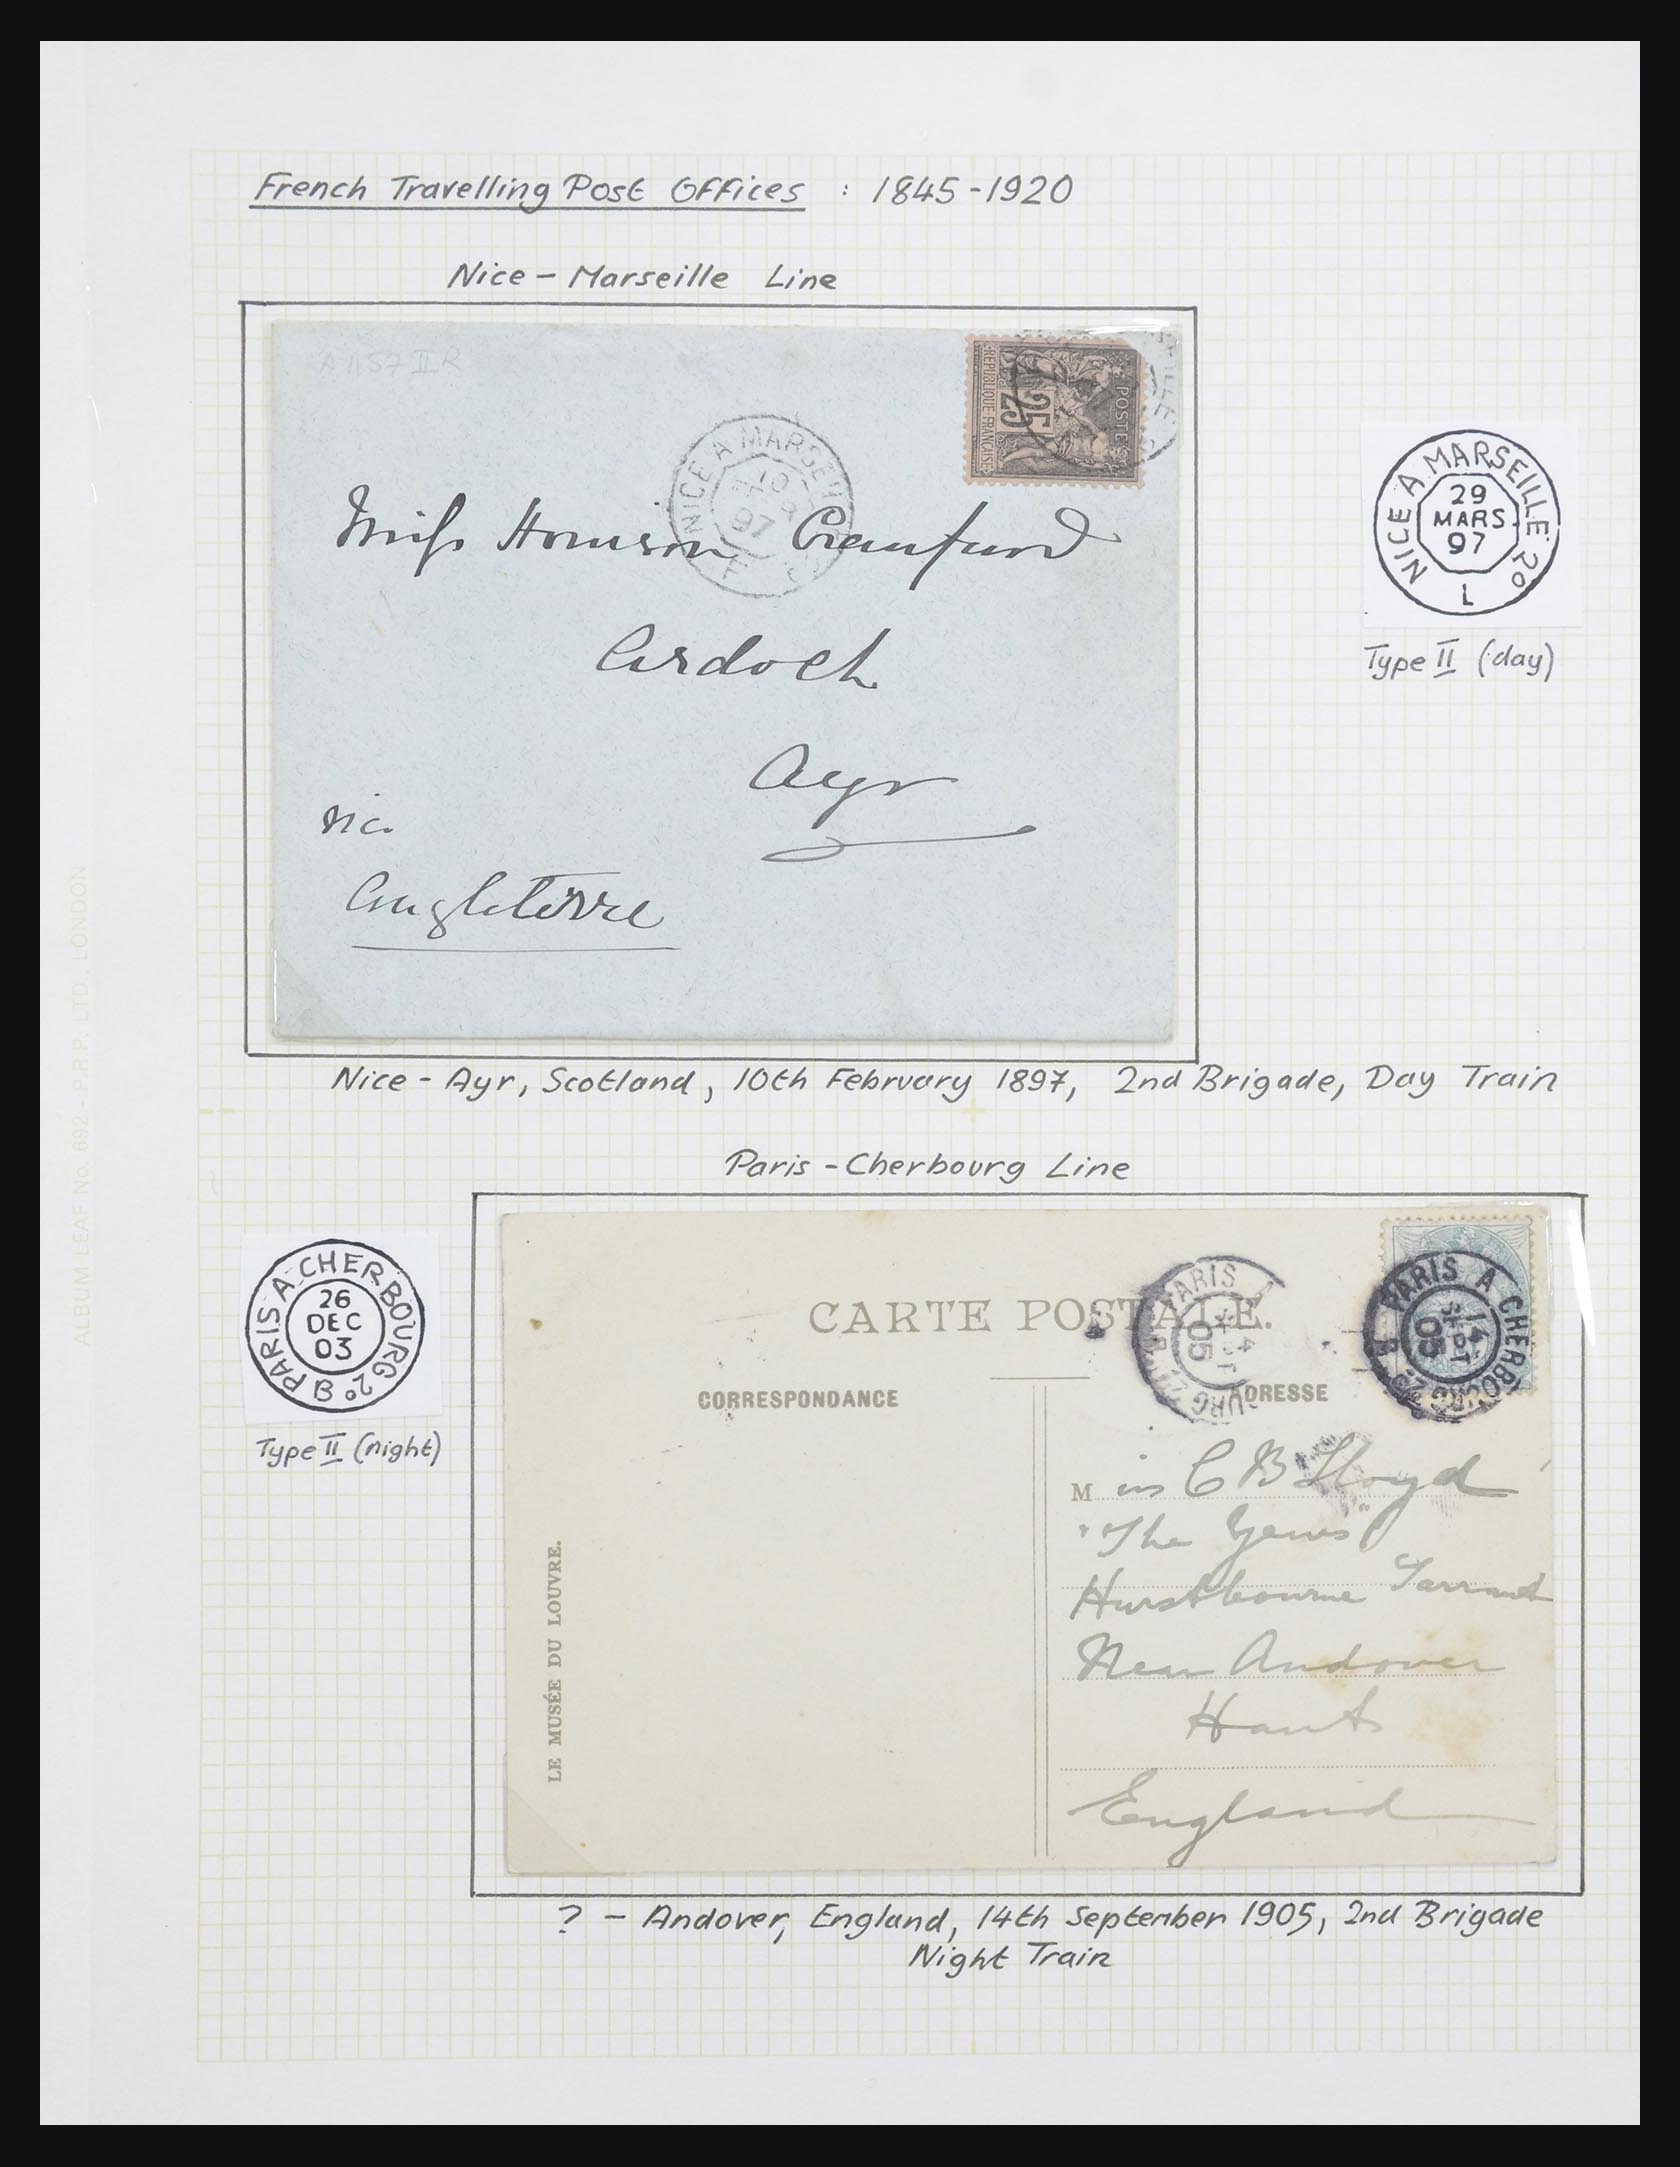 French Travelling Post Offices : 1845-1920
Nice - Marseille Line
A1157 II R
POSTES
25
REPUBLIQUE FRANÇAISE
NICE A MARSEILLE
10
97
Miss
Craufurd
Ardoch
Ayr
via
Angleterre
NICE A MARSEILLE 2º
29
MARS
97
L
Type II (day)
Nice - Ayr, Scotland, 10th February 1897, 2nd Brigade, Day Train
Paris - Cherbourg Line
PARIS A CHERBOURG 2º B
26
DEC
03
Type II (night)
CARTE POSTALE.
CORRESPONDANCE
ADRESSE
PARIS A CHERBOURG 2º
14
SEPT
05
PARIS A CHERBOURG 2º
14
SEPT
05
Miss C B Lloyd
"The Yews"
Hurstbourne Tarrant
Near Andover
Hants
England
LE MUSÉE DU LOUVRE.
? - Andover, England, 14th September 1905, 2nd Brigade
Night Train
ALBUM LEAF No. 692 - P.R.P. LTD. LONDON